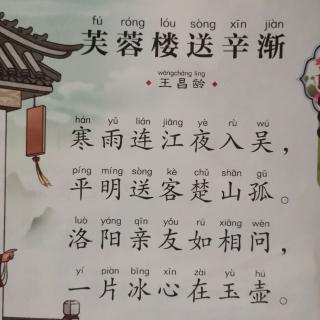 fú róng lóu sòng xīn jiàn
芙蓉楼送辛渐
wángchāng líng
王昌龄
hán yǔ lián jiāng yè rù wú
寒雨连江夜入吴，
píng míng sòng kè chǔ shān gū
平明送客楚山孤。
luò yáng qīn yǒu rú xiāng wèn
洛阳亲友如相问，
yí piàn bīng xīn zài yù hú
一片冰心在玉壶。